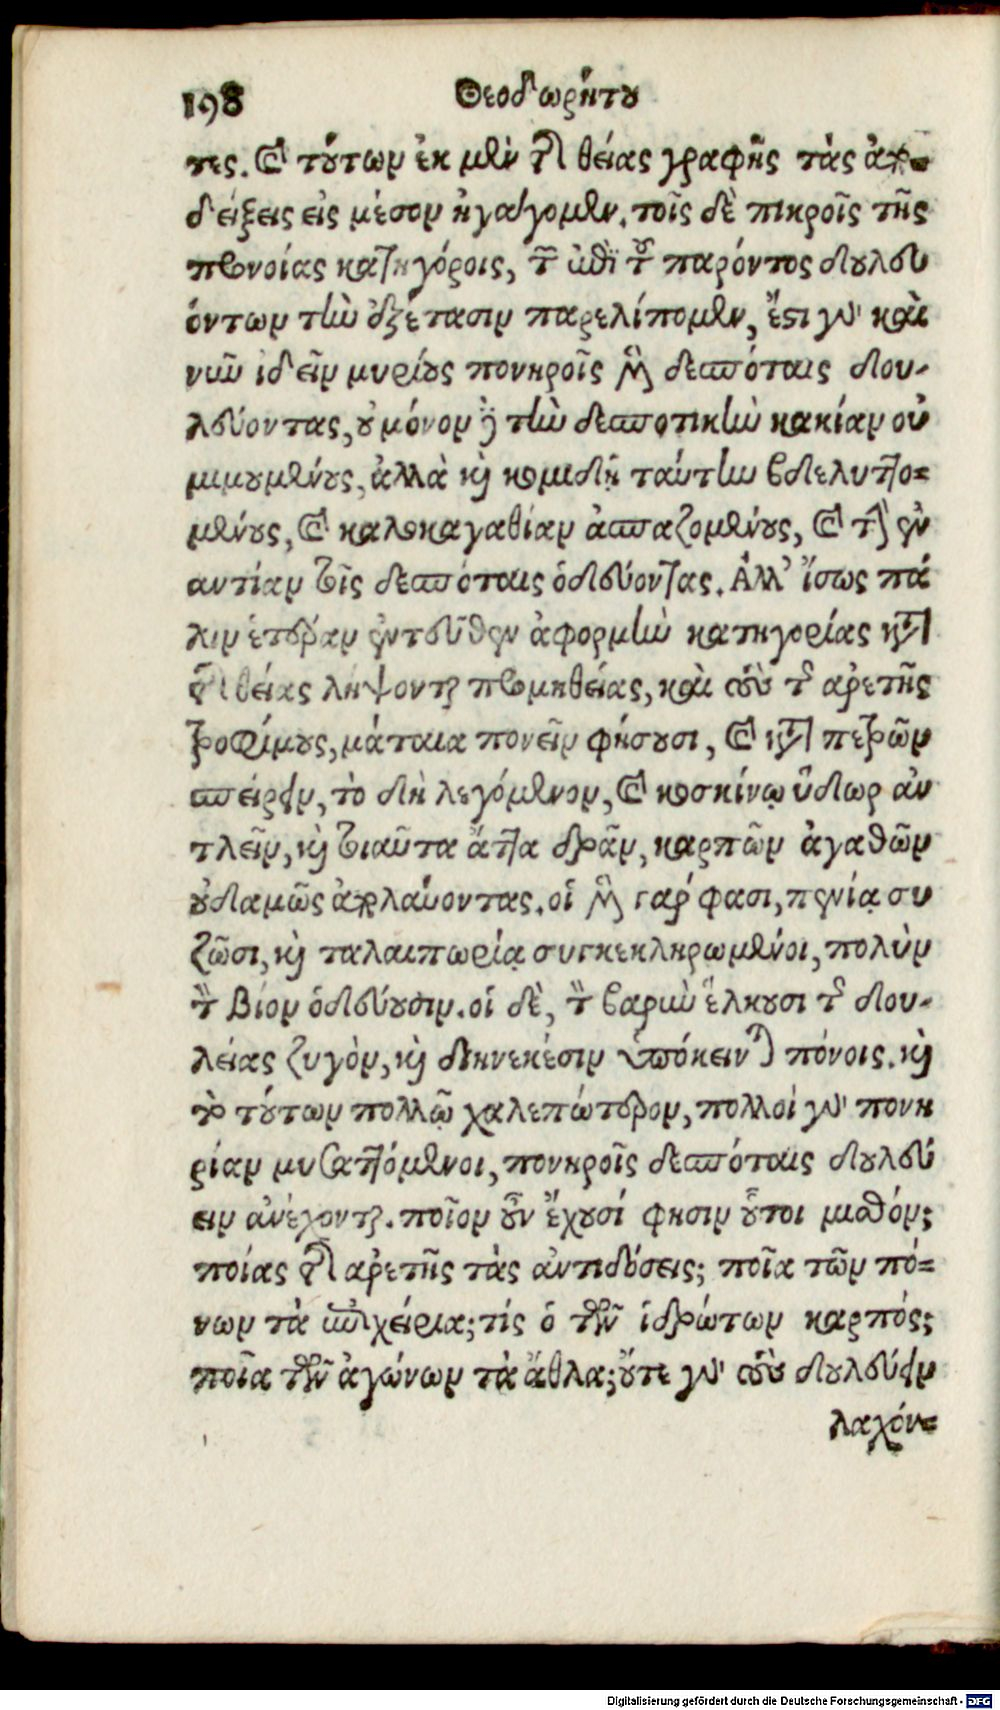 198 Θεοδωρήτου
τες. καὶ τούτων ἐκ μὲν τῆς θείας γραφῆς τὰς ἀπο-
δείξεις εἰς μέσον ἠγάγομεν. τοῖς δὲ πικροῖς τῆς
προνοίας κατηγόροις, τῶν ἐπὶ τοῦ παρόντος δουλευ
όντων τὴν ἐξέτασιν παρελίπομεν, ἔστι γὰρ καὶ
νῦν ἰδεῖν μυρίους πονηροῖς μὲν δεσπόταις δου-
λεύοντας, οὐ μόνον δὲ τὴν δεσποτικὴν κακίαν οὐ
μιμουμένους, ἀλλὰ καὶ κομιδῇ ταύτην βδελυττο-
μένους, καὶ καλοκαγαθίαν ἀσπαζομένους, καὶ τὴν ἐν
αντίαν τοῖς δεσπόταις ὁδεύοντας. Ἀλλ' ἴσως πά
λιν ἑτέραν ἐντεῦθεν ἀφορμὴν κατηγορίας κατὰ
τῆς θείας λήψονται προμηθείας, καὶ τοὺς τῆς ἀρετῆς
τροφίμους, μάταια πονεῖν φήσουσι, καὶ κατὰ πετρῶν
σπείρειν, τὸ δὴ λεγόμενον, καὶ κοσκίνῳ ὕδωρ ἀν
τλεῖν, καὶ τοιαῦτα ἄττα δρᾶν, καρπῶν ἀγαθῶν
οὐδαμῶς ἀπολαύοντας. οἱ μὲν γάρ φασι, πενίᾳ συ
ζῶσι, καὶ ταλαιπωρίᾳ συγκεκληρωμένοι, πολὺν
τὸν βίον ὁδεύουσιν. οἱ δὲ, τὸν βαρὺν ἕλκουσι τῆς δου-
λείας ζυγὸν, καὶ διηνεκέσιν ὑπόκεινται πόνοις. καὶ
τὸ τούτων πολλῷ χαλεπώτερον, πολλοὶ γὰρ πονη
ρίαν μυσαττόμενοι, πονηροῖς δεσπόταις δουλεύ
ειν ἀνέχονται. ποῖον οὖν ἔχουσί φησιν οὗτοι μισθόν;
ποίας τῆς ἀρετῆς τὰς ἀντιδόσεις; ποῖα τῶν πό-
νων τὰ ἐπίχειρα; τίς ὁ τῶν ἱδρώτων καρπός;
ποῖα τῶν ἀγώνων τὰ ἄθλα; οὔτε γὰρ τοὺς δουλεύειν
λαχόν-
Digitalisierung gefördert durch die Deutsche Forschungsgemeinschaft - DFG